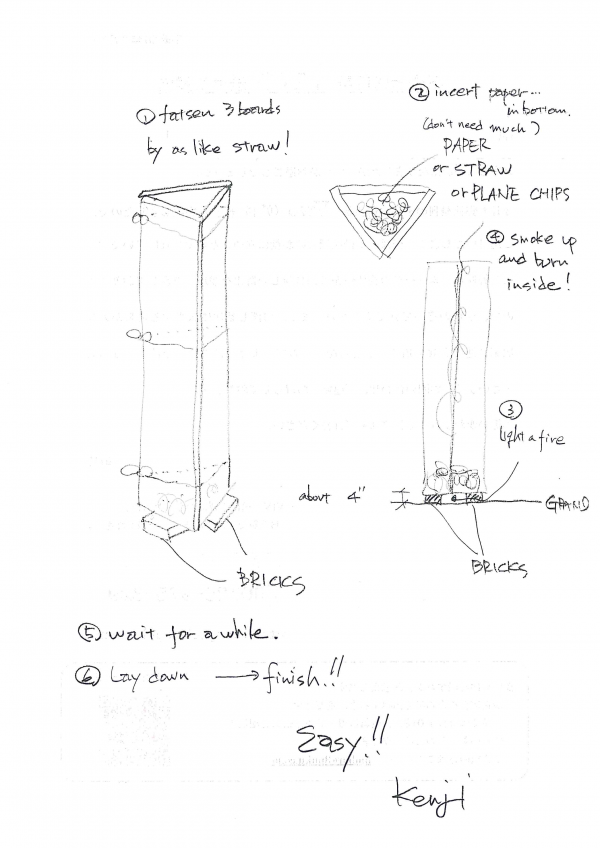 ① fatsen 3 boards
by as like straw!
② incert paper...
in bottom.
(don't need much)
PAPER
or STRAW
or PLANE CHIPS
④ smoke up
and burn
inside!
③
light a fire
about 4"
GRAND
BRICKS
BRICKS
⑤ wait for a while.
⑥ Lay down → finish!!
Easy!!
Kenji